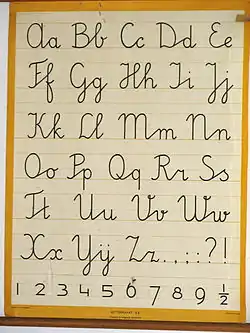 Aa Bb Cc Dd Ee
Ff Gg Hh Ii Jj
Kk Ll Mm Nn
Oo Pp Qq Rr Ss
Tt Uu Vv Ww
Xx IJij Zz.,:;?!
1 2 3 4 5 6 7 8 9 ½